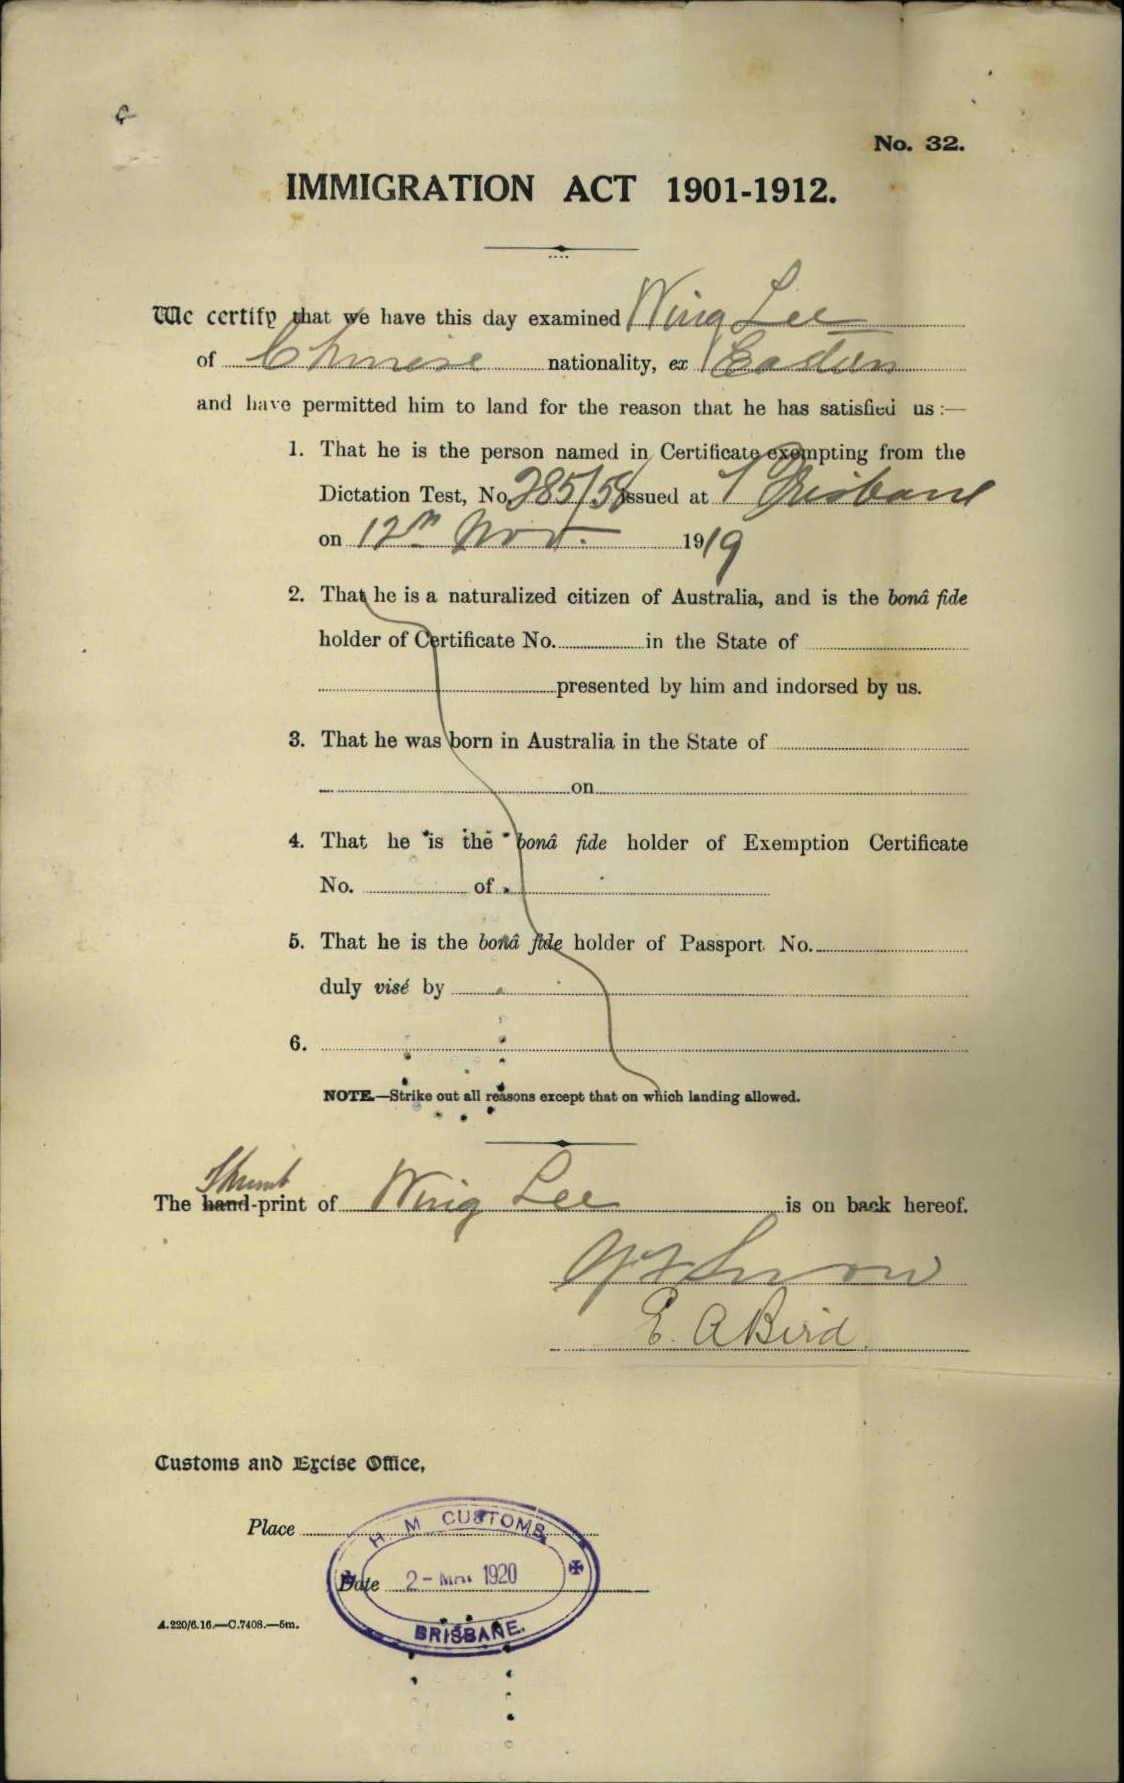 No. 32.
IMMIGRATION ACT 1901-1912.
We certify that we have this day examined Wing Lee
of Chinese nationality, ex Eastern
and have permitted him to land for the reason that he has satisfied us:—
1. That he is the person named in Certificate exempting from the
Dictation Test, No. 285/58 issued at Brisbane
on 12th Nov. 1919
2. That he is a naturalized citizen of Australia, and is the bonâ fide
holder of Certificate No. in the State of
presented by him and indorsed by us.
3. That he was born in Australia in the State of
on
4. That he is the bonâ fide holder of Exemption Certificate
No. of
5. That he is the bonâ fide holder of Passport No.
duly visé by
6.
NOTE.—Strike out all reasons except that on which landing allowed.
Thumb
The hand-print of Wing Lee is on back hereof.
Snow
E. A Bird.
Customs and Excise Office,
Place
H. M CUSTOMS
Date 2- 1920
BRISBANE.
A.220/6.16.—C.7408.—5m.